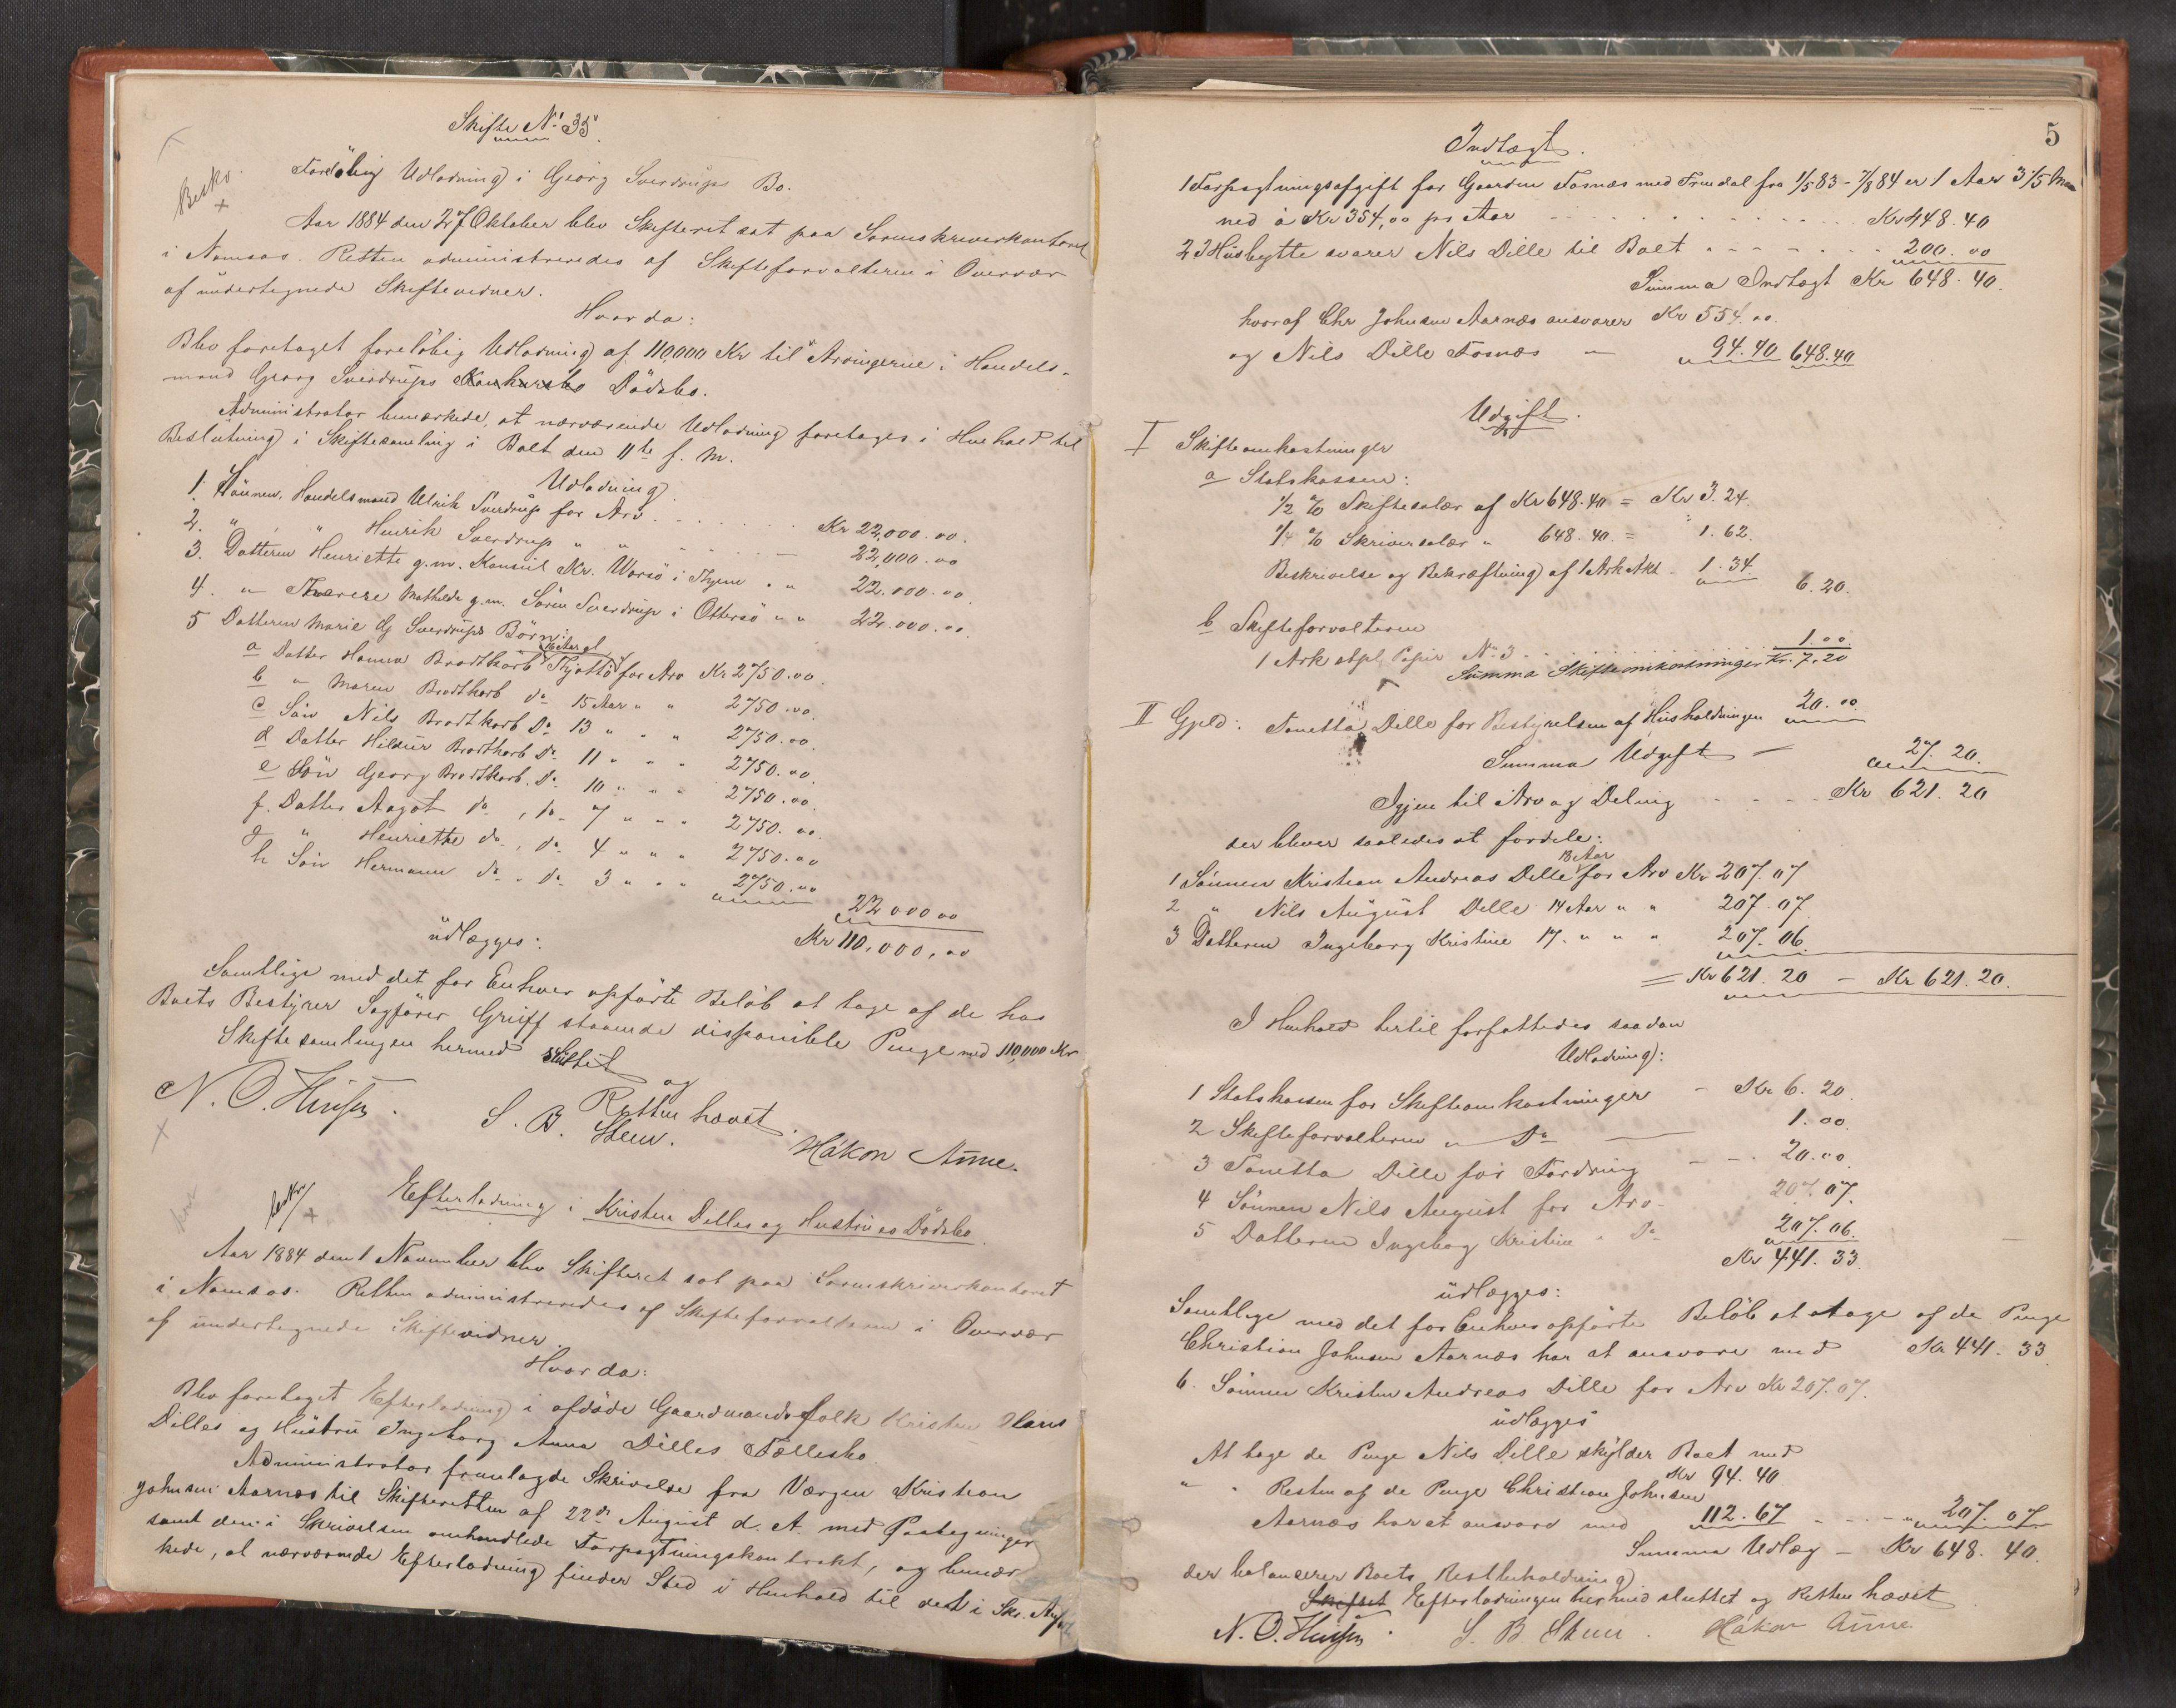 Skifte No 35.
Beskr.
Foreløbig Udlodning i Georg Sverdrups Bo.
Aar 1884 den 27 Oktober blev Skifteret sat paa Sorenskriverkontoret
i Namsos. Retten administreredes af Skifteforvalteren i Overvær
af undertegnede Skiftevidner.
Hvorda:
Blev foretaget foreløbig Udlodning af 110,000 Kr til Arvingerne i Handels-
mand Georg Sverdrups Konkursbo Dödsbo.
Administrator bemærkede, at nærværende Udlodning foretages i Henhold til
Beslutning i Skiftesamling i Boet den 11te f. M.
Udlodning
1. Sönnen, Handelsmand Ulrik Sverdrup for Arv Kr 22,000.00.
2. " , " Henrik Sverdrup " " 22,000.00
3. Datteren Henriette g.m. Konsul Kr. Warsö i Thjem " " 22.000.00.
4. " Therese Mathilde g.m. Sören Sverdrup i Ottersö " " 22.000.00.
5 Datteren Marie Sverdrups Börn:
16 Aar gl
a Datter Hanna Brodtkorb Thjøttö for Arv Kr 2750.00.
b " Maren Brodtkorb do 15 Aar " " 2750.00.
c Sön Nils Brodtkorb Do 13 " " " 2750.00.
d Datter Hildur Brodtkorb Do 11 " " " 2750.00.
e Sön Georg Brodtkorb. Do 10 " " " 2750.00.
f. Datter Aagot do , do 7 " " " 2750.00.
g " Henriette do , do 4 " " " 2750.00
h Sön Hermann do " Do 3 " " " 2750.00
22 000 00
Kr 110,000,00
udlægges:
Samtlige med det for Enhver opførte Beløb at tage af de hos
Boets Bestyrer Sagfører Grüff staaende disponible Penge med 110,000 Kr
Skiftesamlingen hermed sluttet
og
Retten hævet.
N. O. Hinsen.
S. B. Steen.
Håkon Anne.
beskr
Efterlodning i Kristen Dilles og Hustrues Dödsbo.
Aar 1884 den 1 November blev Skifteret sat paa Sorenskriverkontoret
i Namsos. Retten administreredes af Skifteforvalteren i Overvær
af undertegnede Skiftevidner.
Hvorda:
Blev foretaget Efterlodning i afdöde Gaardmandsfolk Kristen Olaus
Dilles og Hustru Ingeborg Anna Dilles Fællesbo.
Administrator fremlagde Skrivelse fra Værgen Kristian
Johnsen Aarnæs til Skifteretten af 22de August d. A. med Paategninger
samt den i Skrivelsen omhandlede Forpagtningskontrakt, og bemær
kede, at nærværende Efterlodning finder Sted i Henhold til det i Skr. Anf.
5
Indtægt.
1 Forpagtningsafgift for Gaarden Fosnæs med Fremdal fra 1/5 83 - 7/8 84 er 1 Aar 3 1/5 Maa
ned á Kr 354,00 pr Aar Kr 448.40
2 I Husbytte svarer Nils Dille til Boet 200.00
Summa Indtægt Kr 648.40.
hvoraf Chr Johnsen Aarnæs ansvarer Kr 554.00.
og Nils Dille Fosnæs " 94.40 648.40
Udgift.
I Skifteomkostninger
a Statskassen:
1/2 % Skiftesalær af Kr 648.40 = Kr 3.24.
1/4 % Skriversalær " 648.40. = " 1.62.
Beskrivelse og Bekræftning af 1 Ark Akt - 1.34 6.20.
b Skifteforvalteren
1 Ark stpl. Papir No 3 1.00
Summa Skifteomkostninger Kr. 7.20
II Gjeld: Tonetta Dille for Bestyrelsen af Husholdningen 20.00
Summa Udgift 27.20.
Igjen til Arv og Deling Kr 621.20
der bliver saaledes at fordele:
18 Aar
1 Sönnen Kristian Andreas Dille for Arv Kr 207.07
2 " Nils August Dille 14 Aar " " 207.07
3 Datteren Ingeborg Kristine 17. " " " 207.06.
= Kr 621.20 - Kr 621.20.
I Henhold hertil forfattedes saadan
Udlodning:
1 Statskassen for Skifteomkostninger - Kr 6.20.
2 Skifteforvalteren " Do 1.00.
3 Tonetta Dille for Fordring 20.00.
4 Sönnen Nils August for Arv 207.07.
5 Datteren Ingebog Kristine " Do 207.06.
Kr 441.33.
udlægges:
Samtlige med det for Enhver opførte Beløb at tage af de Penge
Christian Johnsen Aarnæs har at ansvare med Kr 441.33.
6. Sönnen Kristen Andreas Dille for Arv Kr 207.07.
udlægges
At tage de Penge Nils Dille skylder Boet med
Kr 94.40
" " Resten af de Penge Christian Johnsen
Aarnæs har at ansvare med 112.67 " 207.07
Summa Udlæg - Kr 648.40.
der balancerer Boets Restbeholdning
Skiftet Efterlodningen hermed sluttet og Retten hævet
N. O. Hinsen. S. B Steen. Håkon Anne.